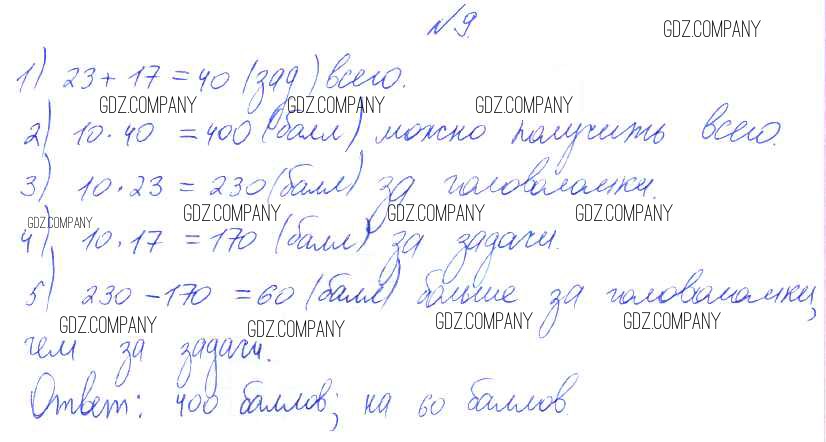 №9. GDZ.COMPANY
1) 23 + 17 = 40 (зад) всего.
GDZ.COMPANY GDZ.COMPANY GDZ.COMPANY
2) 10 · 40 = 400 (балл) можно получить всего.
3) 10 · 23 = 230 (балл) за головоломки.
GDZ.COMPANY GDZ.COMPANY GDZ.COMPANY GDZ.COMPANY
4) 10 · 17 = 170 (балл) за задачи.
5) 230 – 170 = 60 (балл) больше за головоломки,
GDZ.COMPANY GDZ.COMPANY GDZ.COMPANY GDZ.COMPANY
чем за задачи.
Ответ: 400 баллов; на 60 баллов.